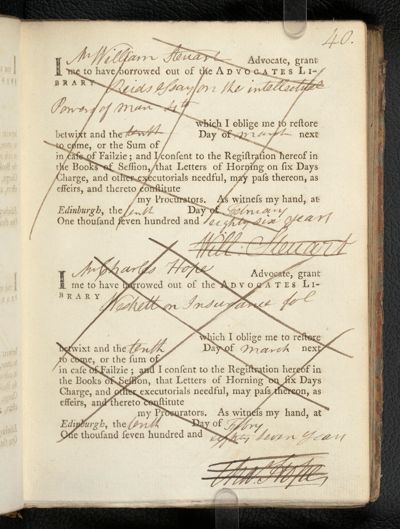 40.
I Mr William Steuart Advocate, grant
me to have borrowed out of the ADVOCATES LI-
BRARY Reids essay on the intellectual
Powers of man 4to
which I oblige me to reſtore
betwixt and the tenth Day of march next
to come, or the Sum of
in caſe of Failzie; and I conſent to the Regiſtration hereof in
the Books of Seſſion, that Letters of Horning on ſix Days
Charge, and other executorials needful, may paſs thereon, as
effeirs, and thereto conſtitute
my Procurators. As witneſs my hand, at
Edinburgh, the tenth Day of
One thouſand ſeven hundred and eighty six years
Will: Steuart
I Mr Charles Hope Advocate, grant
me to have borrowed out of the ADVOCATES LI-
BRARY on Insurance fol
which I oblige me to reſtore
betwixt and the tenth Day of march next
to come, or the ſum of
in caſe of Failzie; and I conſent to the Regiſtration hereof in
the Books of Seſſion, that Letters of Horning on ſix Days
Charge, and other executorials needful, may paſs thereon, as
effeirs, and thereto conſtitute
my Procurators. As witneſs my hand, at
Edinburgh, the tenth Day of Febry
One thouſand ſeven hundred and eighty seven years
Chas. Hope